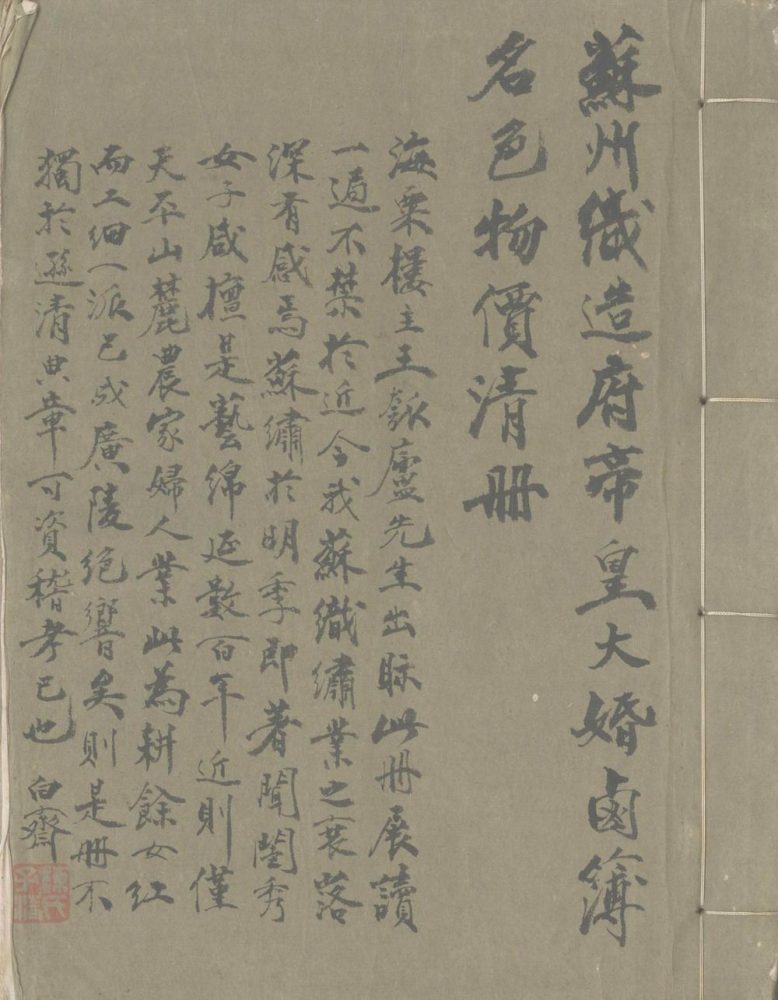 蘇州織造府帝皇大婚鹵簿
名色物價清冊
海粟樓主王瓠廬先生出眎此冊展讀
一過不禁於近今我蘇織繡業之衰落
深有感焉蘇繡於明季即著聞閨秀
女子咸擅是藝綿延數百年近則僅
天平山麓農家婦人業此為耕餘女紅
而工細一派已成廣陵絕響矣則是冊不
獨於遜清典章可資稽考已也 白齋